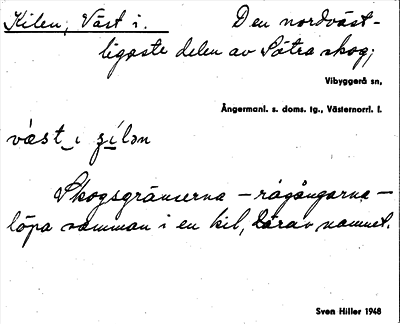 Kilen, Väst i. Den nordväst-
ligaste delen av Sätra skog;
Vibyggerå sn,
Ångermanl. s. doms. tg., Västernorrl. l.
väst i çilən
Skogsgränserna – rågångarna –
löpa samman i en kil, därav namnet.
Sven Hiller 1948